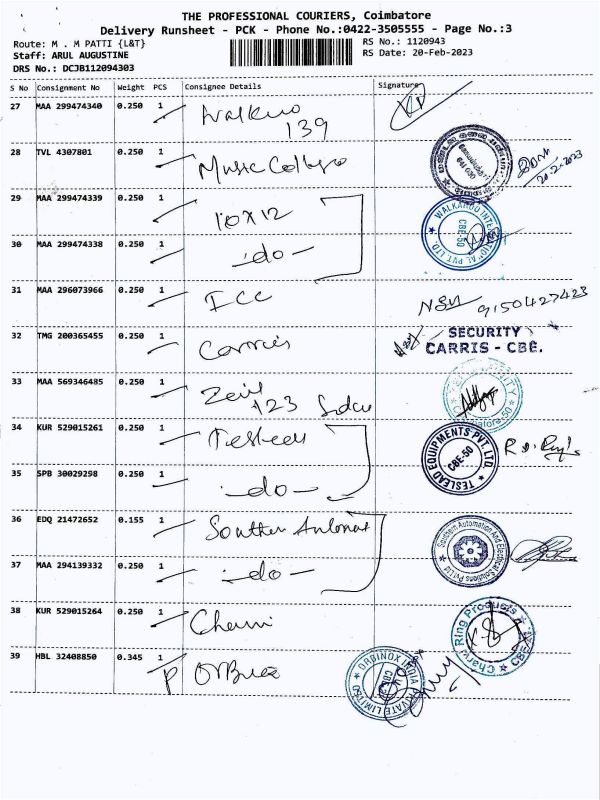 THE PROFESSIONAL COURIERS, Coimbatore
Delivery Runsheet - PCK - Phone No.:0422-3505555 - Page No.:3
Route: M . M PATTI {L&T}
RS No.: 1120943
Staff: ARUL AUGUSTINE
RS Date: 20-Feb-2023
DRS No.: DCJB112094303
S No Consignment No Weight PCS Consignee Details Signature
27 MAA 299474340 0.250 1
139
28 TVL 4307801 0.250 1 Music College
20-2-2023
29 MAA 299474339 0.250 1 10X12
WALKAROO INTERNATIONAL PVT. LTD. CBE-50
30 MAA 299474338 0.250 1 -do-
31 MAA 296073966 0.250 1 ICC
9150427423
32 TMG 200365455 0.250 1 Carris
SECURITY
CARRIS - CBE.
33 MAA 569346485 0.250 1
123 Sidco
34 KUR 529015261 0.250 1
TESLEAD EQUIPMENTS PVT. LTD. CBE-50
35 SPB 30029298 0.250 1 -do-
36 EDQ 21472652 0.155 1 Southern
Southern Automation And Electrical Solutions Pvt Ltd
37 MAA 294139332 0.250 1 -do-
38 KUR 529015264 0.250 1
Charwi Ring Products CBE
39 HBL 32408850 0.345 1
ORBINOX INDIA PRIVATE LIMITED CBE